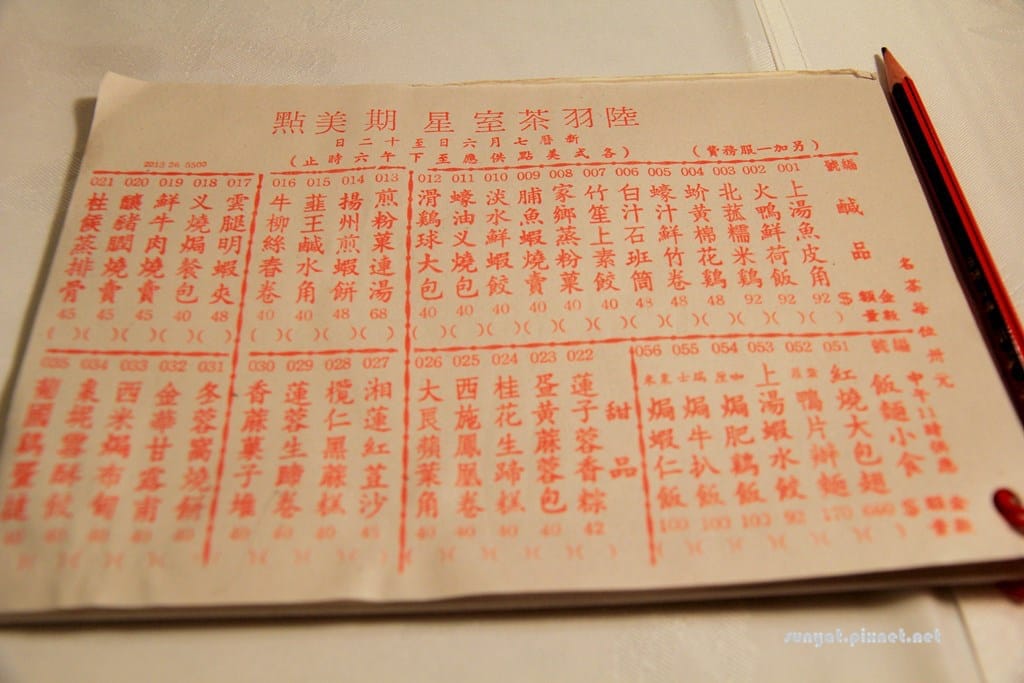 陸羽茶室星期美點
新曆七月六日至十二日
(各式美點供應至下午六時止)
(另加一服務費)
2523 26 5500
編號 鹹品 金額 $ 數量
001 上湯魚皮角 92 ( )
002 火鴨鮮荷飯 92 ( )
003 北菰糯米鷄 92 ( )
004 蚧黄棉花鷄 48 ( )
005 蠔汁鮮竹卷 48 ( )
006 白汁石班筒 48 ( )
007 竹笙上素餃 40 ( )
008 家鄉蒸粉菓 40 ( )
009 脯魚蝦燒賣 40 ( )
010 淡水鮮蝦餃 40 ( )
011 蠔油叉燒包 40 ( )
012 滑鷄球大包 40 ( )
013 煎粉菓連湯 68 ( )
014 揚州煎蝦餅 48 ( )
015 韮王鹹水角 40 ( )
016 牛柳絲春卷 40 ( )
017 雲腿明蝦夾 48 ( )
018 叉燒焗餐包 40 ( )
019 鮮牛肉燒賣 45 ( )
020 釀豬膶燒賣 45 ( )
021 柱侯蒸排骨 45 ( )
名茶每位卅元
中午11時供應
編號 飯麵小食 金額 $ 數量
051 紅燒大包翅
052 鴨片辦麵 170
053 上湯蝦水餃 92
054 咖喱焗肥鷄飯 100
055 瑞士焗牛扒飯 100
056 粟米焗蝦仁飯 100
甜品
022 蓮子蓉香粽 42
023 蛋黄蔴蓉包 40
024 桂花生蹄糕 40
025 西施鳳凰卷 40
026 大良蘋葉角 40
027 湘蓮紅荳沙 45
028 欖仁黑蔴糕 40
029 蓮蓉生蹄卷 40
030 香蔴菓子堆 40
031 冬蓉窩燒餅
032 金華甘露甫
033 西米焗布甸
034 棗坭雪酥餃
035 葡國鷄蛋撻
sunyat.pixnet.net